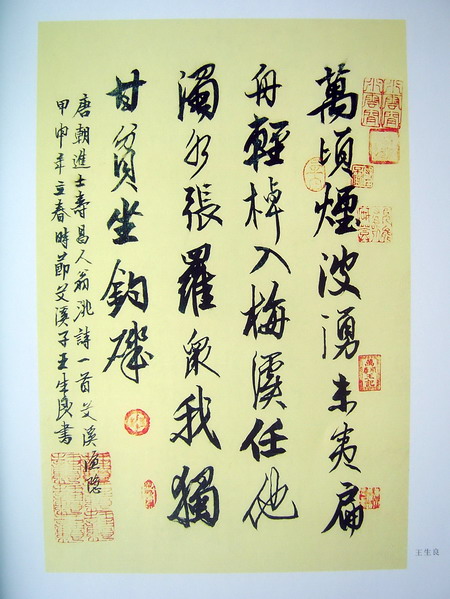 萬頃煙波湧未夷扁
舟輕棹入梅溪任他
濁水張羅衆我獨
甘貧坐釣磯
唐朝進士壽昌人翁洮詩一首艾溪漁隐
甲申年立春時節艾溪子王生良書
王生良